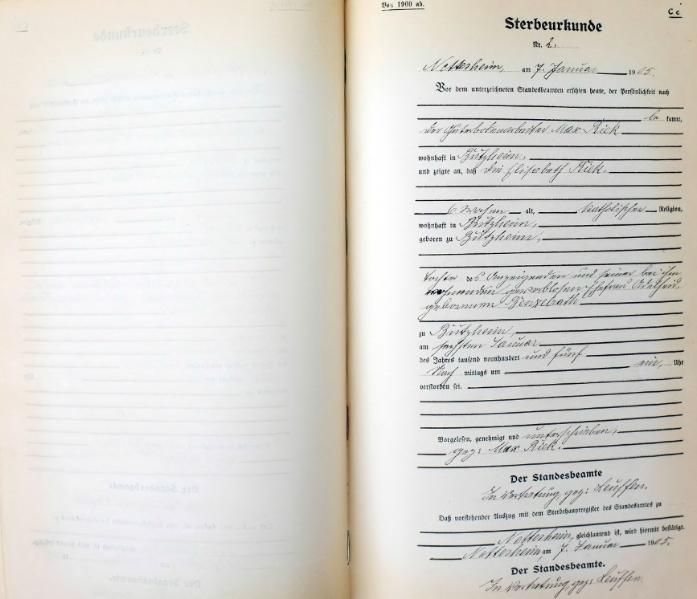 Vor 1900 ab.
C c
Sterbeurkunde
Nr. 2.
Nettesheim, am 7. Januar 1905.
Vor dem unterzeichneten Standesbeamten erschien heute, der Persönlichkeit nach
be kannt,
der Güterbodenarbeiter Max Rick
wohnhaft in Butzheim,
und zeigte an, daß die Elisabeth Rick,
6 Wochen alt, katholischer Religion,
wohnhaft in Butzheim,
geboren zu Butzheim,
Tochter des Anzeigenden und seiner bei ihm
wohnenden gewerblosen Ehefrau
geborenen
zu Butzheim,
am sechsten Januar
des Jahres tausend neunhundert und fünf
Nach mittags um ein, Uhr
verstorben sei.
Vorgelesen, genehmigt und unterschrieben,
gez: Max Rick.
Der Standesbeamte
In Vertretung, gez:
Daß vorstehender Auszug mit dem Sterbehauptregister des Standesamts zu
Nettesheim, gleichlautend ist, wird hiermit bestätigt.
Nettesheim, am 7. Januar 1905.
Der Standesbeamte.
In Vertretung, gez: